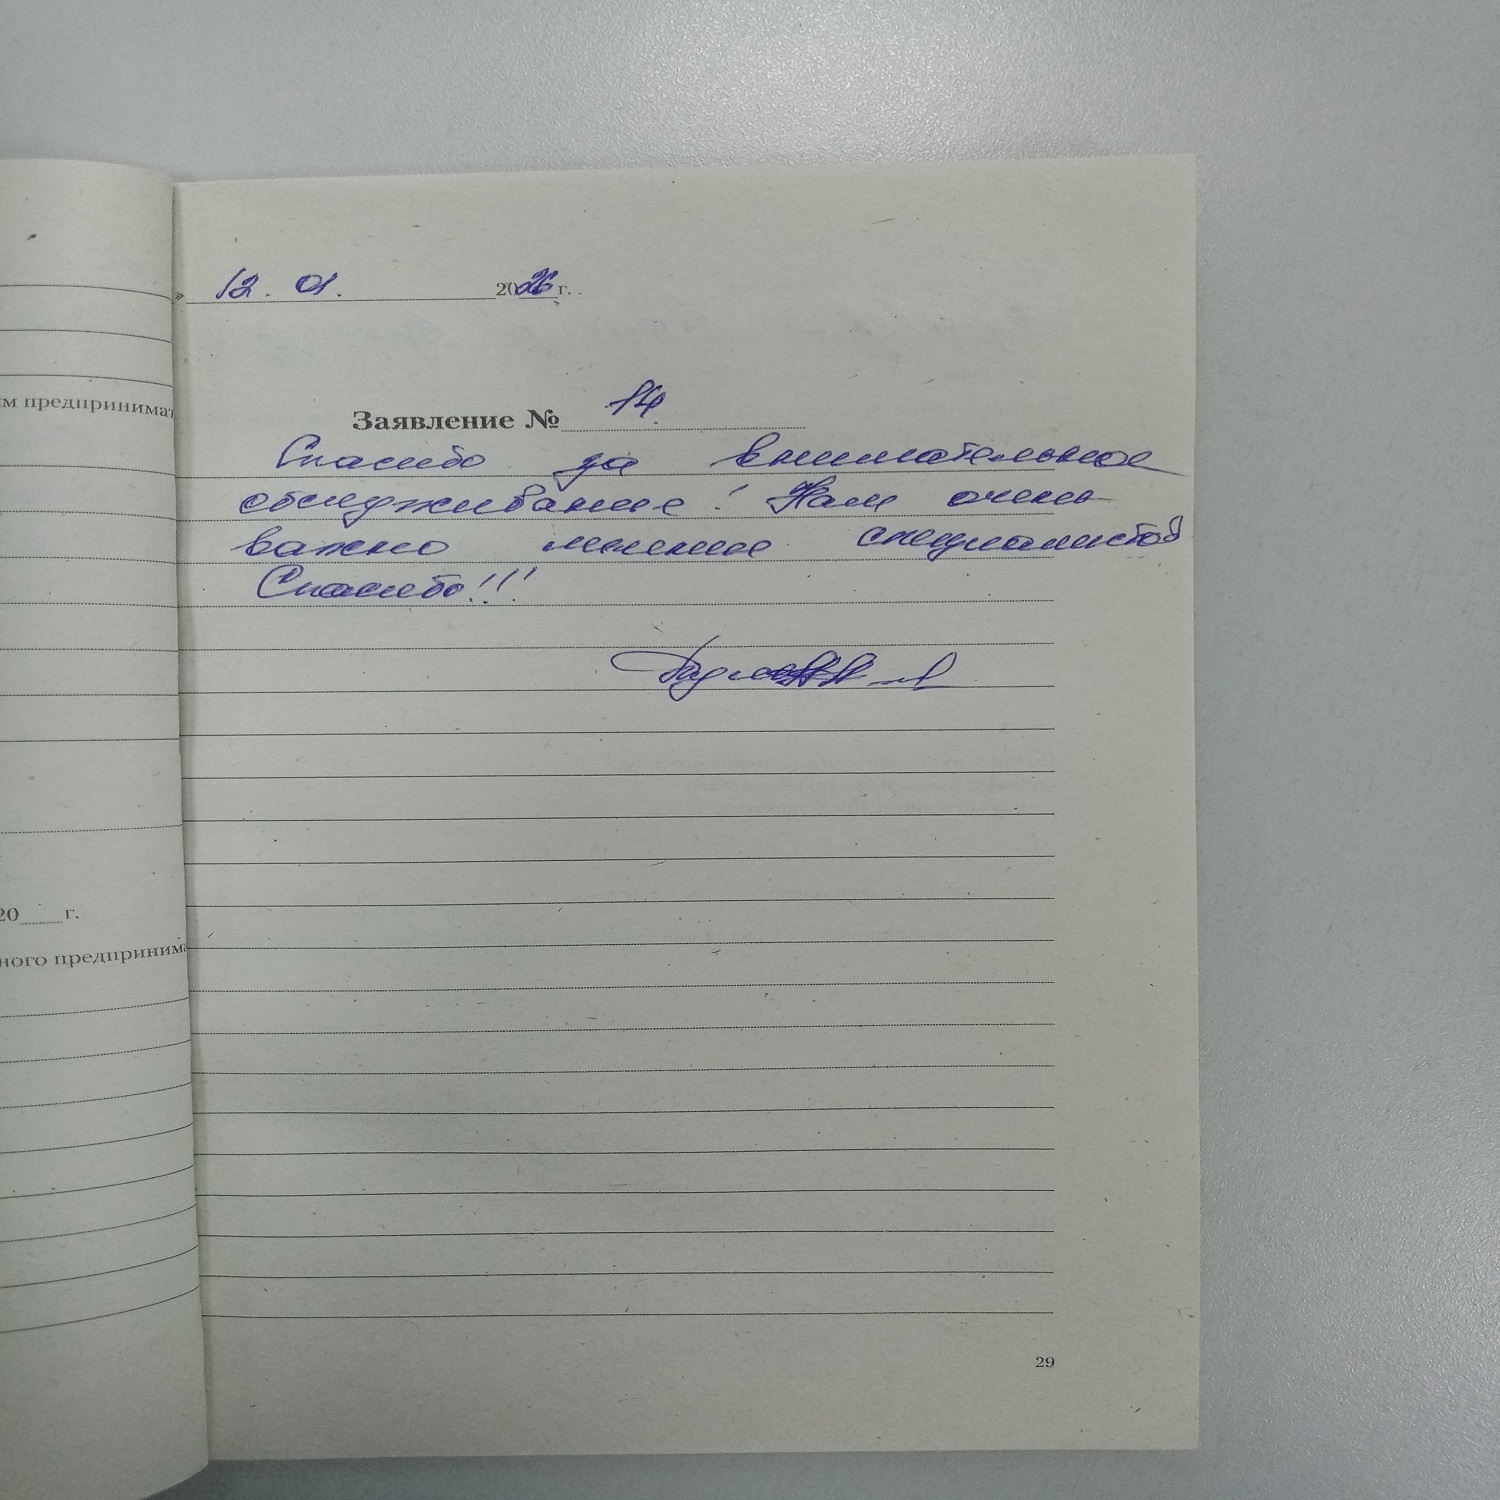 » 12. 01. 2026 г.
Заявление № 14
Спасибо за внимательное
обслуживание! Нам очень
важно мнение специалистов
Спасибо!!!
им предпринимат
20 г.
ного предприним
29